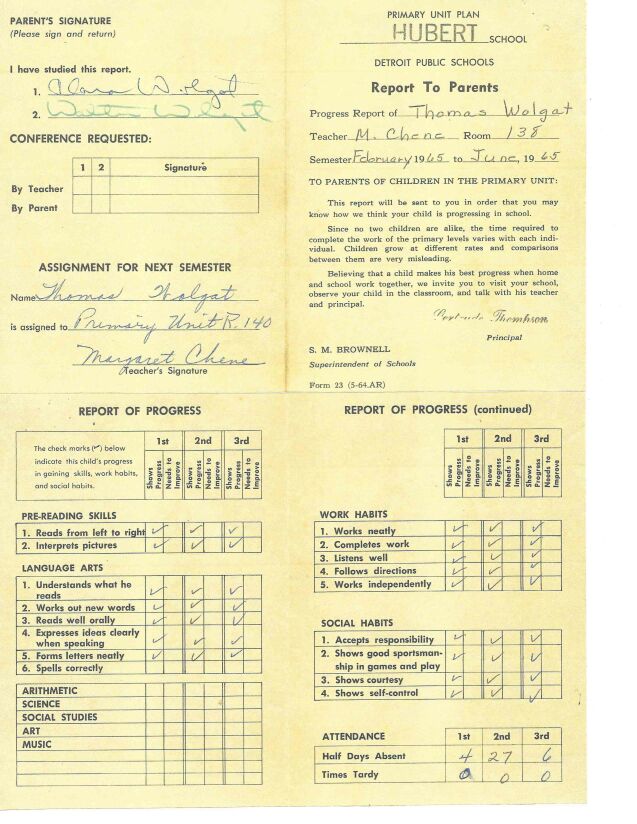 PARENT'S SIGNATURE
(Please sign and return)
I have studied this report.
1. Clara Wolgat
2. Walter Wolgat
CONFERENCE REQUESTED:
1 2 Signature
By Teacher
By Parent
ASSIGNMENT FOR NEXT SEMESTER
Name Thomas Wolgat
is assigned to Primary Unit R. 140
Margaret Chene
Teacher's Signature
PRIMARY UNIT PLAN
HUBERT SCHOOL
DETROIT PUBLIC SCHOOLS
Report To Parents
Progress Report of Thomas Wolgat
Teacher M. Chene Room 138
Semester February 1965 to June, 1965
TO PARENTS OF CHILDREN IN THE PRIMARY UNIT:
This report will be sent to you in order that you may
know how we think your child is progressing in school.
Since no two children are alike, the time required to
complete the work of the primary levels varies with each indi-
vidual. Children grow at different rates and comparisons
between them are very misleading.
Believing that a child makes his best progress when home
and school work together, we invite you to visit your school,
observe your child in the classroom, and talk with his teacher
and principal.
Gertrude Thompson
Principal
S. M. BROWNELL
Superintendent of Schools
Form 23 (5-64.AR)
REPORT OF PROGRESS
The check marks (✓) below
indicate this child's progress
in gaining skills, work habits,
and social habits.
1st 2nd 3rd
Shows Progress Needs to Improve Shows Progress Needs to Improve Shows Progress Needs to Improve
PRE-READING SKILLS
1. Reads from left to right ✓ ✓ ✓
2. Interprets pictures ✓ ✓ ✓
LANGUAGE ARTS
1. Understands what he
reads ✓ ✓ ✓
2. Works out new words ✓ ✓ ✓
3. Reads well orally ✓ ✓ ✓
4. Expresses ideas clearly
when speaking ✓ ✓ ✓
5. Forms letters neatly ✓ ✓ ✓
6. Spells correctly
ARITHMETIC
SCIENCE
SOCIAL STUDIES
ART
MUSIC
REPORT OF PROGRESS (continued)
1st 2nd 3rd
Shows Progress Needs to Improve Shows Progress Needs to Improve Shows Progress Needs to Improve
WORK HABITS
1. Works neatly ✓ ✓ ✓
2. Completes work ✓ ✓ ✓
3. Listens well ✓ ✓ ✓
4. Follows directions ✓ ✓ ✓
5. Works independently ✓ ✓ ✓
SOCIAL HABITS
1. Accepts responsibility ✓ ✓ ✓
2. Shows good sportsman-
ship in games and play ✓ ✓ ✓
3. Shows courtesy ✓ ✓ ✓
4. Shows self-control ✓ ✓ ✓
ATTENDANCE 1st 2nd 3rd
Half Days Absent 4 27 6
Times Tardy 0 0 0